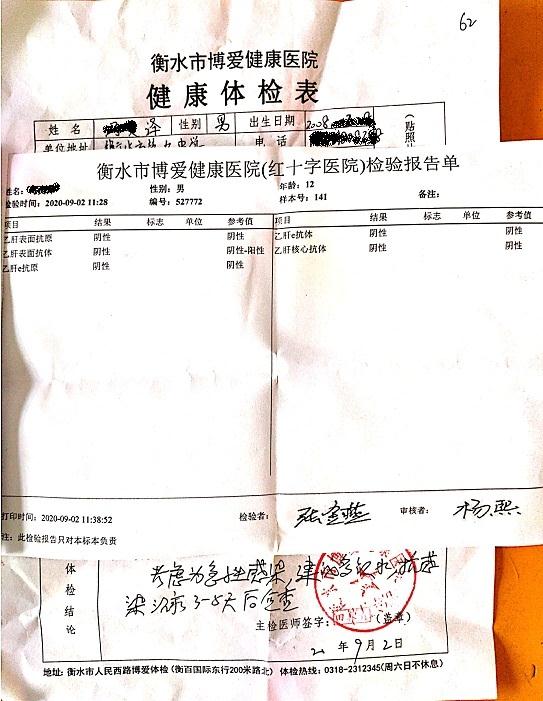 62
衡水市博爱健康医院
健康体检表
姓名 泽 性别 男 出生日期 2008
单位地址 电话 (贴照
衡水市博爱健康医院(红十字医院)检验报告单
姓名: 性别: 男 年龄: 12 备注:
检验时间: 2020-09-02 11:28 编号: 527772 样本号: 141
项目 结果 标志 单位 参考值 项目 结果 标志 单位 参考值
乙肝表面抗原 阴性 阴性 乙肝e抗体 阴性 阴性
乙肝表面抗体 阴性 阴性-阳性 乙肝核心抗体 阴性 阴性
乙肝e抗原 阴性 阴性
打印时间: 2020-09-02 11:38:52 检验者: 审核者: 杨熙
注: 此检验报告只对本标本负责
体检结论
考虑为急性感染,建议 抗感
染治疗3-5天后复查
主检医师签字: (盖章)
年9月2日
地址: 衡水市人民西路博爱体检 (衡百国际东行200米路北) 体检热线: 0318-2312345(周六日不休息)